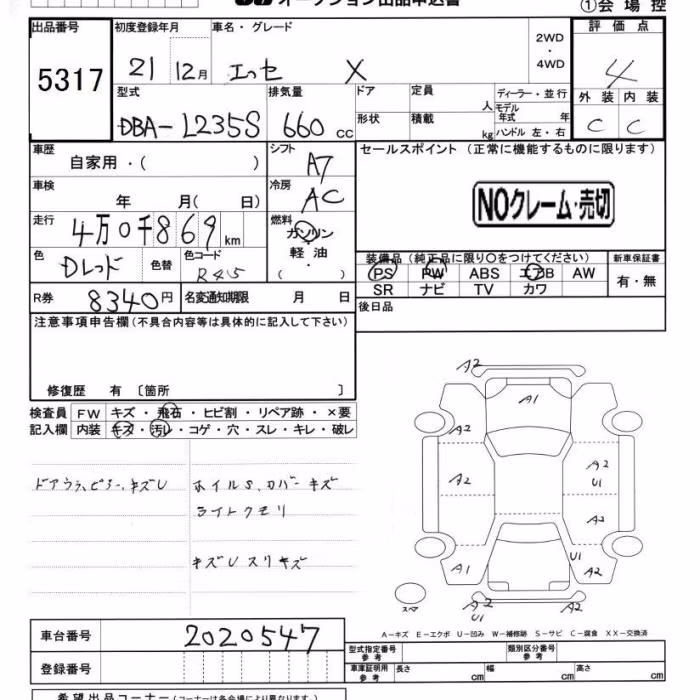 オークション出品申込書
①会場控
出品番号 初度登録年月 車名・グレード 2WD・4WD 評価点
5317 21 12月 エッセ X 4
型式 排気量 ドア 定員 人 ディーラー・並行 外装 内装
DBA-L235S 660cc 形状 積載 kg モデル年式 年 ハンドル 左・右 C C
車歴 シフト セールスポイント (正常に機能するものに限ります)
自家用・( ) A7
車検 冷房
年 月( 日) AC NOクレーム・売切
走行 燃料
4万0千869km ガソリン
色 色替 色コード 軽油 装備品(純正品に限り○をつけてください) 新車保証書
Dレッド R45 ・( ) PS PW ABS エアB AW 有・無
R券 名変通知期限 月 日 SR ナビ TV カワ
8340円 後日品
注意事項申告欄(不具合内容等は具体的に記入して下さい)
修復歴 有 〔箇所 〕
検査員 FW キズ・飛石・ヒビ割・リペア跡・×要
記入欄 内装 キズ・汚レ・コゲ・穴・スレ・キレ・破レ
ドアウラ、ピラー、キズU ホイルS、カバーキズ
ライトクモリ
キズUスリキズ
A2
A1
A2 A2
A2 U1
A2
U1
A1 A2
スペア A2 A2
U1
A-キズ E-エクボ U-凹み W-補修跡 S-サビ C-腐食 XX-交換済
車台番号 2020547
型式指定番号 参考 類別区分番号 参考
登録番号 車庫証明用 参考 長さ cm 幅 cm 高さ cm
希望出品コーナー(コーナーは各会場により異なります。)